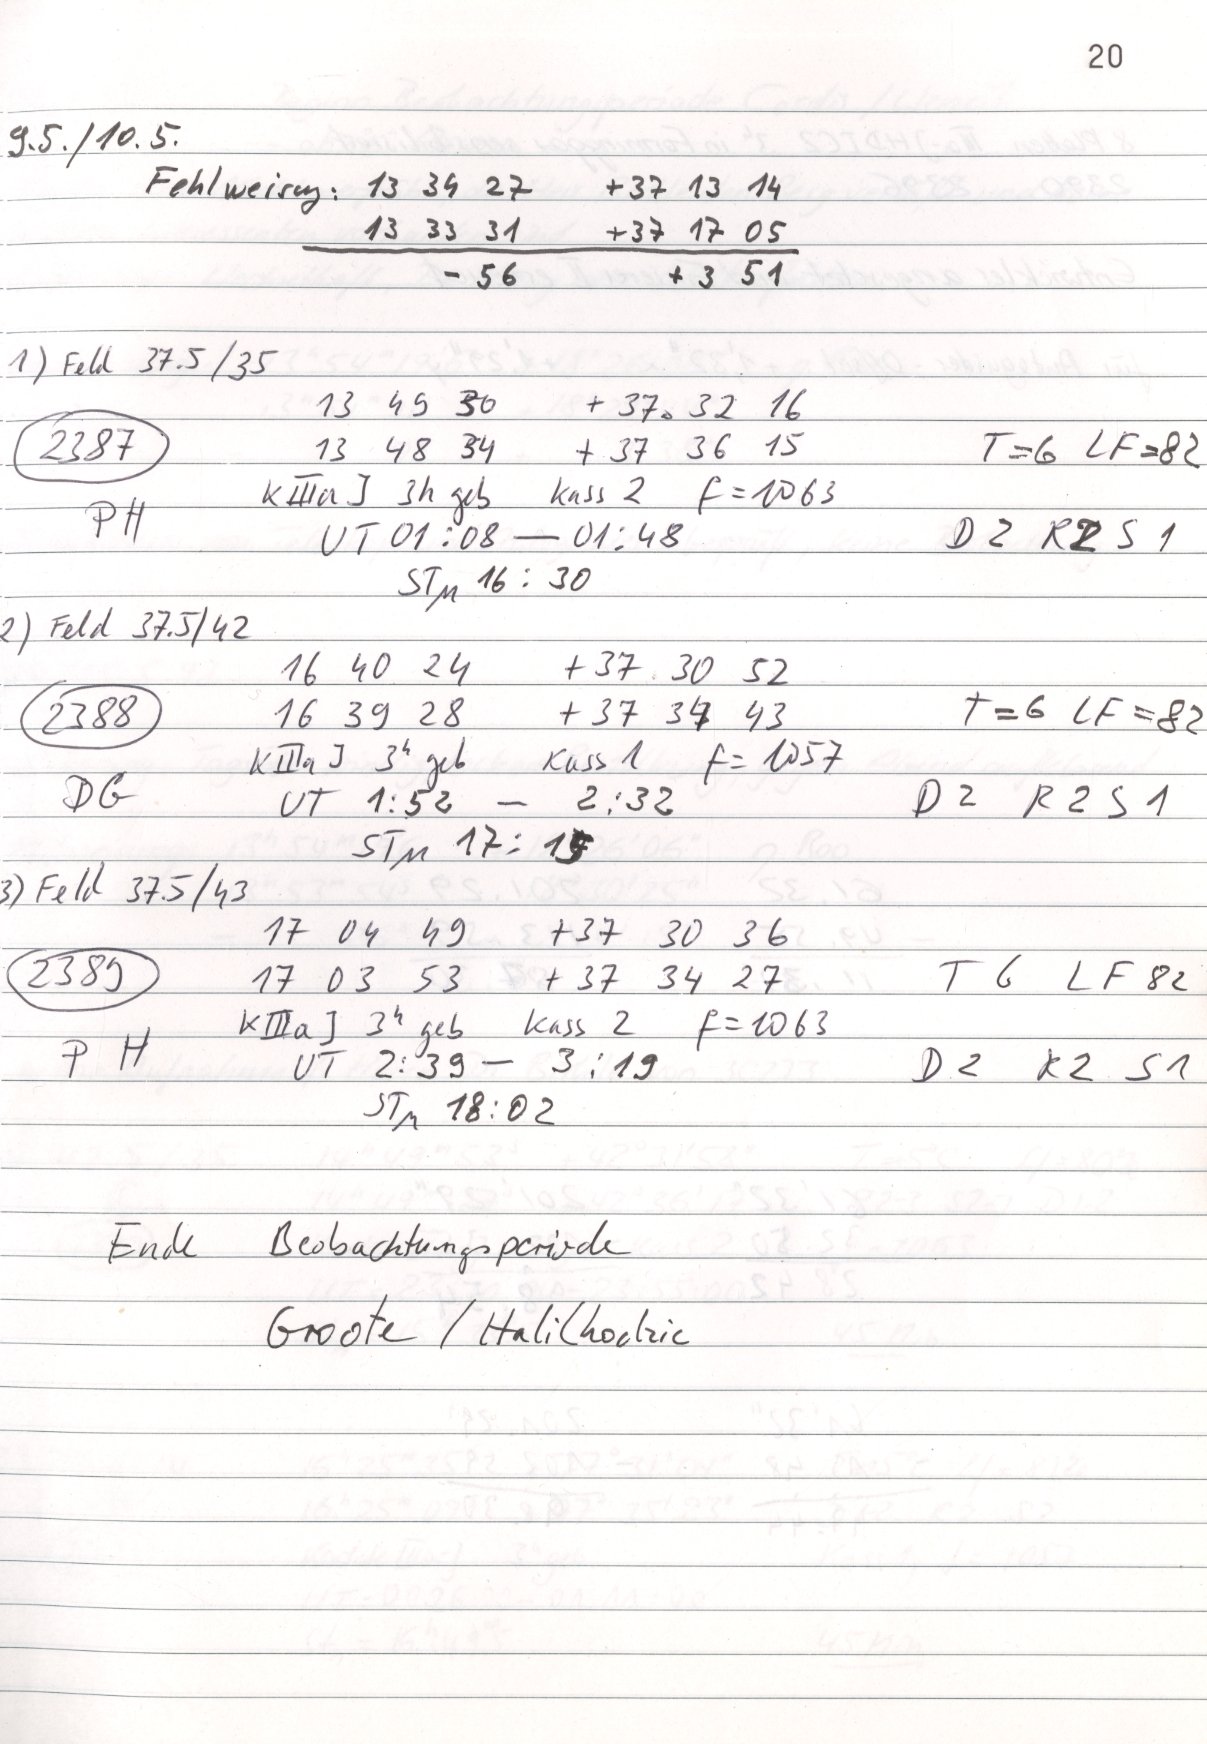 20
9.5./10.5.
Fehlweisung: 13 34 27 +37 13 14
13 33 31 +37 17 05
- 56 + 3 51
1) Feld 37.5/35
13 49 30 +37. 32 16
2387 13 48 34 +37 36 15 T=6 LF=82
KIIIaJ 3h geb Kass 2 f=1063
PH UT 01:08 — 01:48 D2 R2 S1
STM 16:30
2) Feld 37.5/42
16 40 24 +37 30 52
2388 16 39 28 +37 34 43 T=6 LF=82
KIIIaJ 3h geb Kass 1 f=1057
DG UT 1:52 — 2:32 D2 R2 S1
STM 17:15
3) Feld 37.5/43
17 04 49 +37 30 36
2389 17 03 53 +37 34 27 T 6 LF 82
KIIIaJ 3h geb Kass 2 f=1063
PH UT 2:39 — 3:19 D2 R2 S1
STM 18:02
Ende Beobachtungsperiode
Groote / Halilhodzic